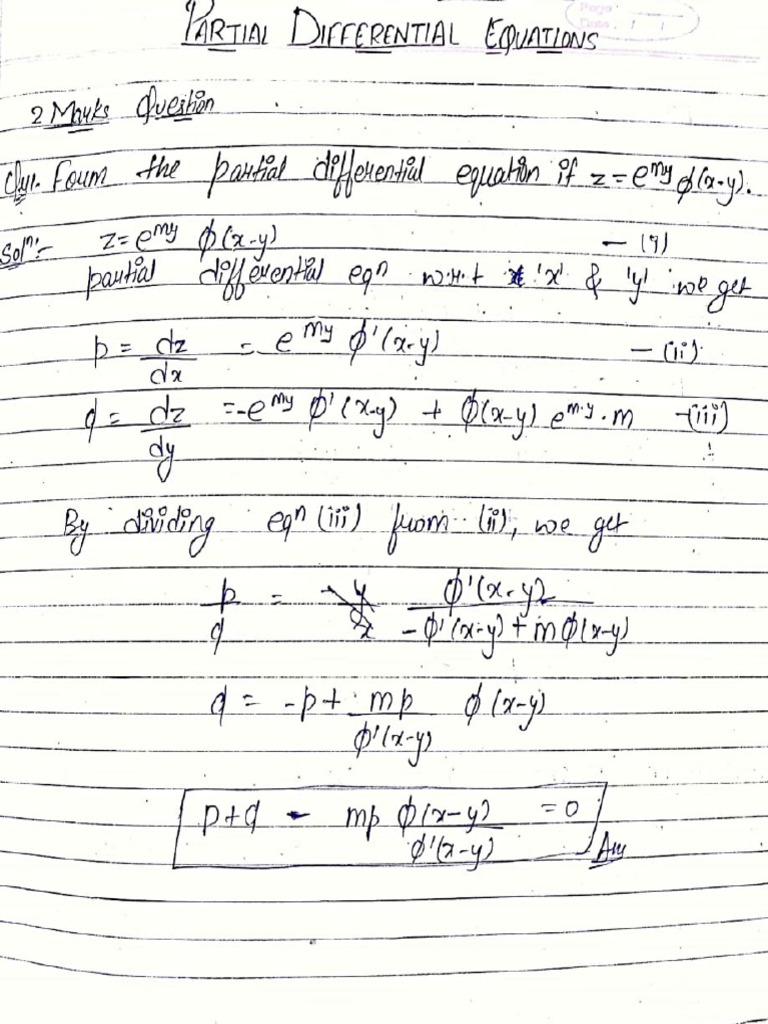 Page
Date / /
PARTIAL DIFFERENTIAL EQUATIONS
2 Marks Question
Qu1. Form the partial differential equation if z = e^my ϕ(x-y).
Solⁿ:- z = e^my ϕ(x-y) — (i)
partial differential eqⁿ w.r.t 'x' & 'y' we get
p = dz/dx = e^my ϕ'(x-y) — (ii)
q = dz/dy = -e^my ϕ'(x-y) + ϕ(x-y) e^m.y . m — (iii)
By dividing eqⁿ (iii) from (ii), we get
p/q = ϕ'(x-y) / -ϕ'(x-y) + mϕ(x-y)
q = -p + mp/ϕ'(x-y) ϕ(x-y)
p+q - mp ϕ(x-y)/ϕ'(x-y) = 0 Ans